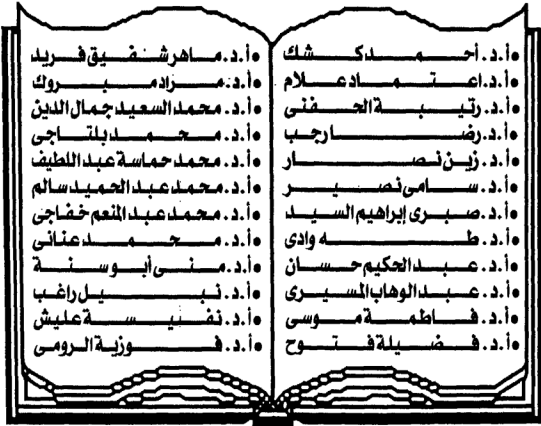 • أ.د. أحمد كشك
• أ.د. اعتماد علام
• أ.د. رتيبة الحفنى
• أ.د. رضا رجب
• أ.د. زين نصار
• أ.د. سامى نصير
• أ.د. صبرى إبراهيم السيد
• أ.د. طه وادى
• أ.د. عبد الحكيم حسان
• أ.د. عبد الوهاب المسيرى
• أ.د. فاطمة موسى
• أ.د. فضيلة فتوح
• أ.د. ماهر شفيق فريد
• أ.د. مراد مبروك
• أ.د. محمد السعيد جمال الدين
• أ.د. محمد بلتاجى
• أ.د. محمد حماسة عبد اللطيف
• أ.د. محمد عبد الحميد سالم
• أ.د. محمد عبد المنعم خفاجى
• أ.د. محمد عنانى
• أ.د. منى أبو سنة
• أ.د. نبيل راغب
• أ.د. نفيسة عليش
• أ.د. فوزية الرومى